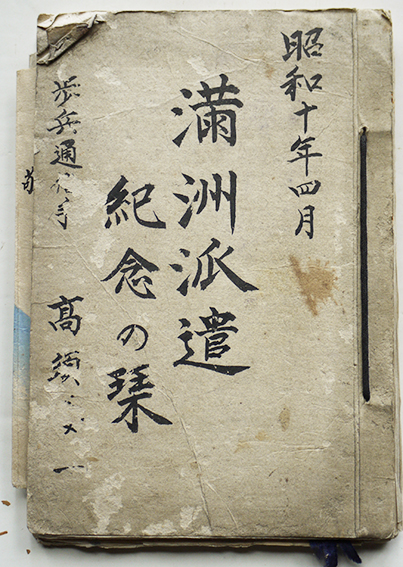 昭和十年四月
満洲派遣
紀念の栞
歩兵通信手
高
一